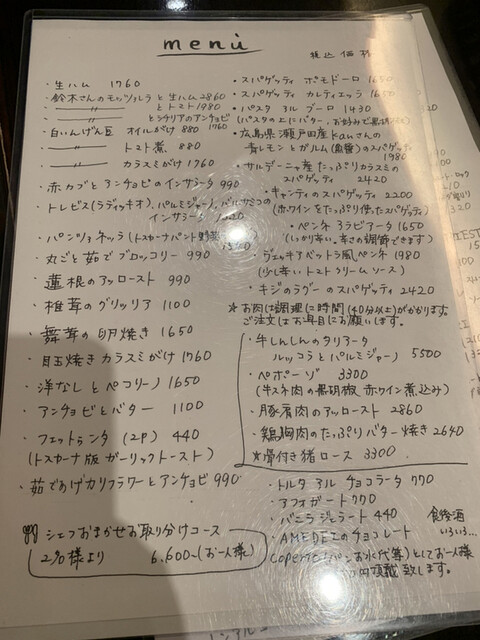 menu
税込価格
・生ハム 1760
・鈴木さんのモッツァレラと生ハム 2860
〃 とトマト 1980
〃 とシチリアのアンチョビ 1760
・白いんげん豆 オイルがけ 880
〃 トマト煮 880
〃 カラスミがけ 1760
・赤カブとアンチョビのインサラータ 990
・トレビス(ラディッキオ)、パルミジャーノ、バルサミコの
インサラータ
・パンツァネッラ(トスカーナパント野菜
・丸ごと茹でブロッコリー 990
・蓮根のアッロースト 990
・椎茸のグリッリア 1100
・舞茸の卵焼き 1650
・目玉焼きカラスミがけ 1760
・洋なしとペコリーノ 1650
・アンチョビとバター 1100
・フェットゥンタ(2P) 440
(トスカーナ版ガーリックトースト)
・茹であげカリフラワーとアンチョビ 990
シェフおまかせお取り分けコース
2名様より 6,600~(お一人様)
・スパゲッティ ポモドーロ 1650
・スパゲッティ カレティエッラ 1650
・パスタ アル ブーロ 1430
(パスタの上にバター、お好みで黒胡椒
・広島県瀬戸田産Kauさんの
青レモンとガルム(魚醤)のスパゲッティ
1980
・サルデーニャ産たっぷりカラスミの
スパゲッティ 2420
・キャンティのスパゲッティ 2200
(赤ワインをたっぷり使ったスパゲッティ)
・ペンネ アラビアータ 1650
(しっかり辛い。辛さの調節できます)
・ヴェッキアベットラ風ペンネ 1980
(少し辛いトマトクリームソース)
・キジのラグーのスパゲッティ 2420
★お肉は調理に時間(40分以上)がかかります。
ご注文はお早目にお願いします。
・牛しんしんのタリアータ
ルッコラとパルミジャーノ 5500
・ペポーゾ 3300
(牛スネ肉の黒胡椒 赤ワイン煮込み)
・豚肩肉のアッロースト 2860
・鶏胸肉のたっぷりバター焼き 2640
★骨付き猪ロース 3300
・トルタ アル チョコラータ 770
・アフォガート 770
・バニラジェラート 440
・AMEDEIのチョコレート
食後酒
いろいろ…
coperto(パンお水代等)としてお一人様
円頂戴致します。